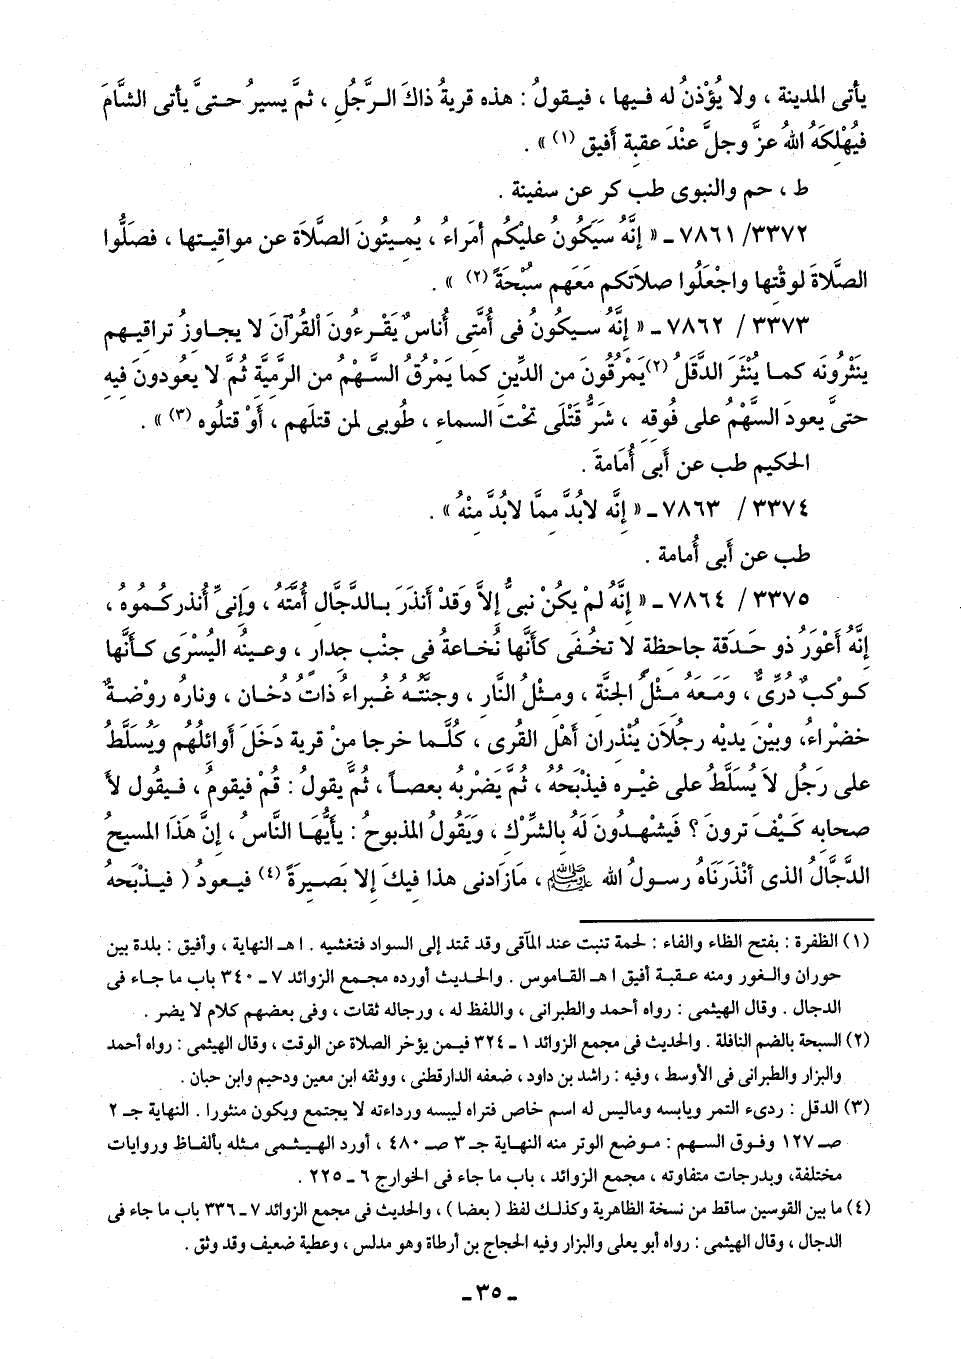 يأتى المدينة ، ولا يُؤْذنُ له فيها ، فيقولُ : هذه قريةُ ذاكَ الرَّجُلِ ، ثمَّ يسيرُ حتىَّ يأتى الشَّامَ
فيُهْلكَهُ اللهُ عزَّ وجلَّ عنْدَ عقبة أَفيق (١) » .
ط ، حم والبغوى طب كر عن سفينة .
٣٣٧٢/ ٧٨٦١ ـ « إنَّهُ سَيَكُونُ عليْكُم أمَراءُ ، يُميتُونَ الصَّلاَة عن مواقيتها ، فصَلُّوا
الصَّلاَةَ لوقْتها واجْعَلُوا صلاَتكم مَعَهم سُبْحَةً (٢) » .
٣٣٧٣ / ٧٨٦٢ ـ « إنَّهُ سيكونُ فى أُمَّتى أُناسٌ يَقْرءُونَ الْقُرآنَ لا يجاوزُ تراقيهم
ينْثُرُونَه كما يُنْثَرَ الدَّقَلُ (٢)يَمْرقُونَ من الدِّينِ كما يَمْرقُ السَّهْمُ من الرميَّة ثُمَّ لا يعُودونَ فيه
حتىَّ يعودَ السَّهْمُ على فُوقِهِ ، شرُّ قَتْلَى تحْتَ السماءِ ، طُوبى لمن قتلَهم ، أَوْ قتلُوه (٣) » .
الحكيم طب عن أَبى أُمَامةَ .
٣٣٧٤ / ٧٨٦٣ ـ « إنَّه لابُدَّ ممَّا لابُدَّ منْهُ » .
طب عن أَبى أُمامة .
٣٣٧٥ / ٧٨٦٤ ـ « إنَّهُ لمْ يكُنْ نبىٌّ إلاَّ وقدْ أنذَرَ بالدَّجَّال أُمَّتَهُ ، وَإنىِّ أُنذركُموهُ ،
إنَّهُ أعْوَرُ ذو حَدَقة جاحظة لا تخْفَى كأنَّها نُخاعةُ فى جنْب جدار ، وعينُه اليُسْرَى كأنَّها
كوْكبٌ دُرِّىٌّ ، ومَعَهُ مثْلُ الجنَّة ، ومثْلُ النَّار ، وجنَّتُهُ غُبراءُ ذاتُ دُخان ، ونارُه روْضةٌ
خضْراءُ، وبيْنَ يديْه رجُلاَن يُنْذران أهْلَ القرى ، كُلَّما خرجا منْ قرية دَخَلَ أوائلُهم ويُسَلَّطُ
على رَجُل لاَ يُسَلَّطُ على غيْره فيذْبَحُهُ ، ثمَّ يَضْربُه بعصاً ، ثُمَّ يقولُ : قُمْ فيقومُ ، فيقول لأ
صحابه كَيْفَ ترونَ ؟ فَيَشْهدُونَ لَهُ بالشِّرْك ، ويَقُولُ المذبوحُ : يأيُّهَا النَّاسُ ، إنَّ هَذَا المسيحُ
الدَّجَّالُ الذى أنْذَرَنَاهُ رسولُ الله ﷺ ، مَازَادنى هذا فيكَ إلا بَصيرَةً (٤) فيعودُ ( فيذْبَحهُ
(١) الظفرة : بفتح الظاء والفاء : لحمة تنبت عند المآقى وقد تمتد إلى السواد فتغشيه . اهـ النهاية ، وأفيق : بلدة بين
حوران والغور ومنه عقبة أفيق اهـ القاموس . والحديث أورده مجمع الزوائد ٧ ـ ٣٤٠ باب ما جاء فى
الدجال . وقال الهيثمى : رواه أحمد والطبرانى ، واللفظ له ، ورجاله ثقات ، وفى بعضهم كلام لا يضر .
(٢) السبحة بالضم النافلة . والحديث فى مجمع الزوائد ١ ـ ٣٢٤ فيمن يؤخر الصلاة عن الوقت ، وقال الهيثمى : رواه أحمد
والبزار والطبرانى فى الأوسط ، وفيه : راشد بن داود ، ضعفه الدارقطنى ، ووثقه ابن معين ودحيم وابن حبان .
(٣) الدقل : ردىء التمر ويابسه وماليس له اسم خاص فتراه ليبسه ورداءته لا يجتمع ويكون منثورا . النهاية جـ ٢
صـ ١٢٧ وفوق السهم : موضع الوتر منه النهاية جـ ٣ صـ ٤٨٠ ، أورد الهيثمى مثله بألفاظ وروايات
مختلفة، وبدرجات متفاوته ، مجمع الزوائد ، باب ما جاء فى الخوارج ٦ ـ ٢٢٥ .
(٤) ما بين القوسين ساقط من نسخة الظاهرية وكذلك لفظ ( بعضا ) ، والحديث فى مجمع الزوائد ٧ ـ ٣٣٦ باب ما جاء فى
الدجال ، وقال الهيثمى : رواه أبو يعلى والبزار وفيه الحجاج بن أرطاة وهو مدلس ، وعطية ضعيف وقد وثق .
ـ ٣٥ ـ